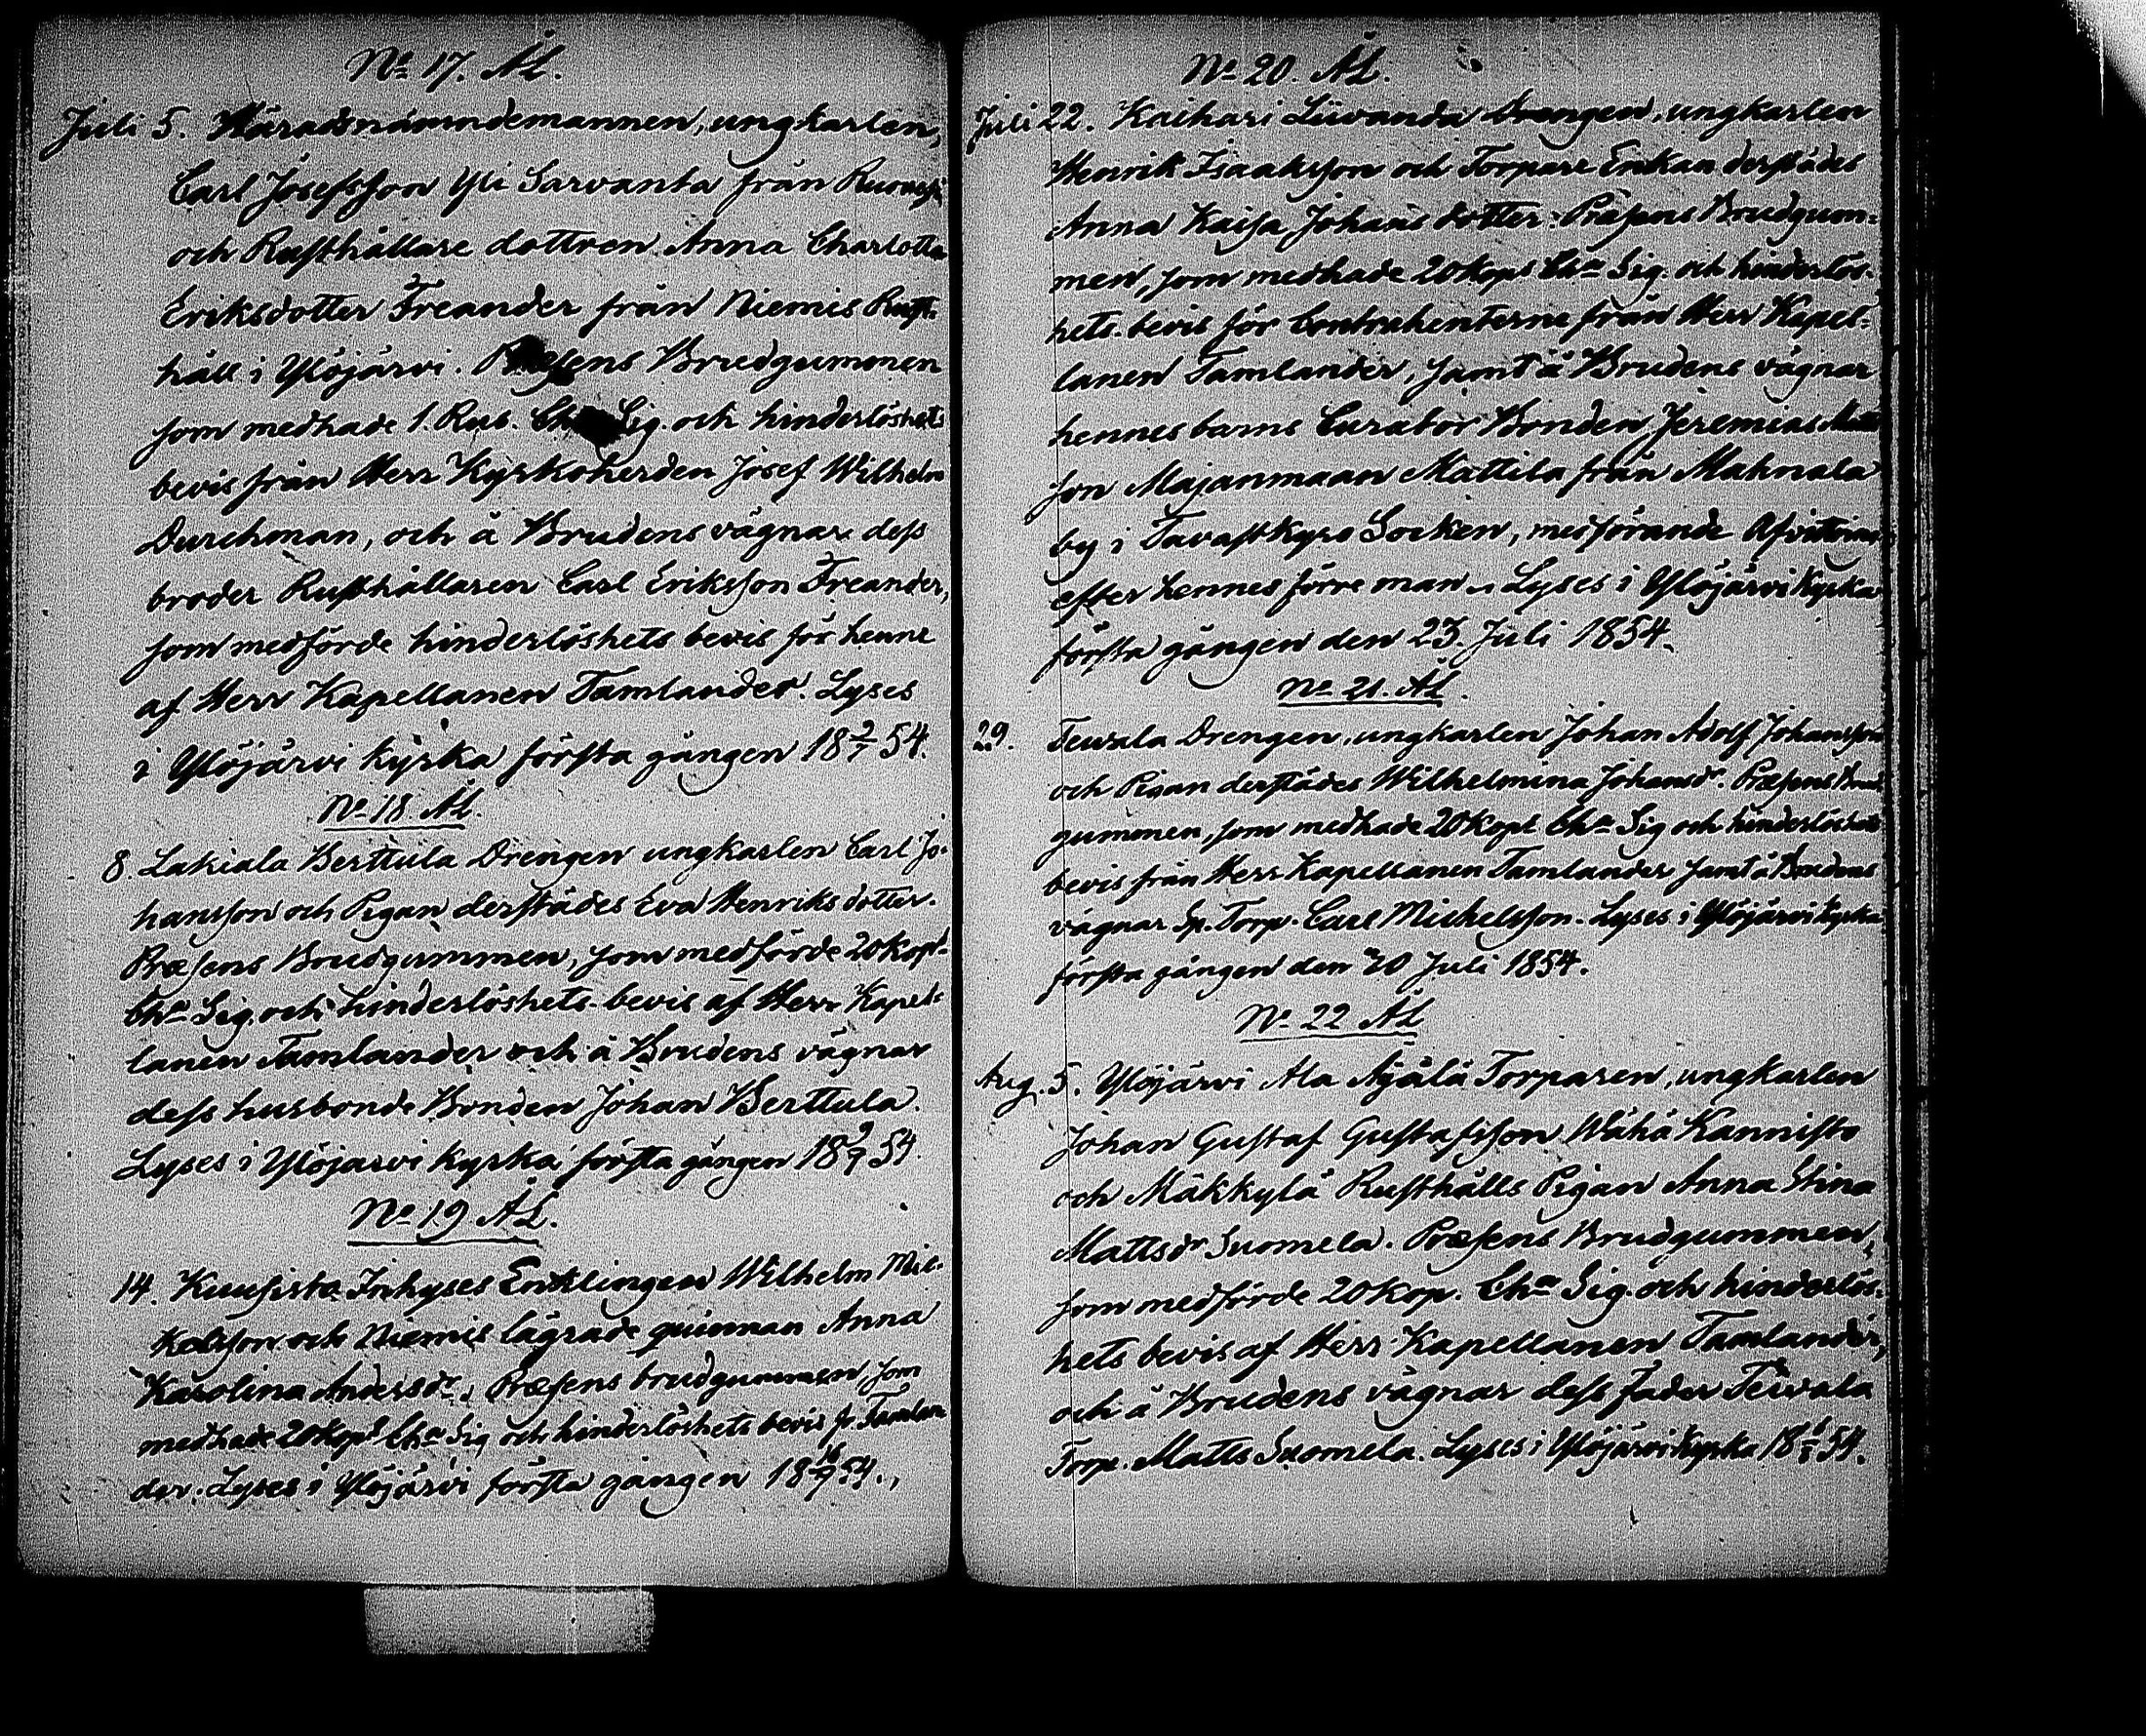 No 17. ÄL.
Juli 5. Häradsnämndemannen, ungkarlen,
Carl Josefsson Yli Sarvanta från Ruovesi
och Rusthållare dottren Anna Charlotta
Eriksdotter Freander från Niemis Rust-
håll i Ylöjärvi. Præsens Brudgummen
som medhade 1. Rub. Cha Sig. och hinderlöshets
bevis från Herr Kyrkoherden Josef Wilhelm
Durchman, och å Brudens vägnar dess
broder Rusthållaren Carl Eriksson Freander,
som medförde hinderlöshets bevis för henne
af Herr Kapellanen Tamlander. Lyses
i Ylöjärvi kyrka första gången 18 9/7 54.
No 18. ÄL.
8. Lakiala Berttula Drengen ungkarlen Carl Jo-
hansson och Pigan derstädes Eva Henriksdotter.
Præsens Brudgummen, som medförde 20 kops
Cha Sig. och hinderlöshets-bevis af Herr Kapel-
lanen Tamlander och å Brudens vägnar
dess husbonde Bonden Johan Berttula.
Lyses i Ylöjärvi kyrka första gången 18 9/7 54.
No 19 ÄL.
14. Kuusisto Inhyses Enklingen Wilhelm Mic-
kelsson och Niemis lägrade quinnan Anna
Karolina Andersdr. Præsens brudgummen, som
medhade 20 kops Cha Sig och hinderlöshets bevis fr. Tamlan-
der. Lyses i Ylöjärvi första gången 18 16/7 54.,
No 20. ÄL.
Juli 22. Kaihari Liuvanda Drengen, ungkarlen
Henrik Isaaksson och Torpare Enkan derstädes
Anna Kaisa Johansdotter: Præsens Brudgum-
men, som medhade 20 Kops Cha Sig. och hinderlös-
hets-bevis för Contrahenterne från Herr Kapel-
lanen Tamlander, samt å Brudens vägnar
hennes barns Curator Bonden Jeremias Matts
son Majanmaan Mattila från Mahnala
by i Tavastkyro Socken, medförande Afvittring
efter hennes förre man. Lyses i Ylöjärvi Kyrka
första gången den 23. Juli 1854.
No 21. ÄL.
29. Teivala Drengen, ungkarlen Johan Adolf Johansson
och Pigan derstädes Wilhelmina Johansdr. Præsens Brud
gummen, som medhade 20 Kops Cha Sig och hinderlöshets
bevis från Herr Kapellanen Tamlander samt å Brudens
vägnar Sp. Torp. Carl Michelsson. Lyses i Ylöjärvi kyrka
första gången den 30 Juli 1854.
No 22 ÄL
Aug. 5. Ylöjärvi Ala Äijälä Torparen, ungkarlen
Johan Gustaf Gustafsson Wähä Kannisto
och Mäkkylä Rusthålls Pigan Anna Stina
Mattsdr Suomela. Præsens Brudgummen,
som medförde 20 Kop. Cha Sig. och hinderlös-
hets bevis af Herr Kapellanen Tamlander,
och å Brudens vägnar dess fader Teivala
Torp. Matts Suomela. Lyses i Ylöjärvi Kyrka 18 6/8 54.